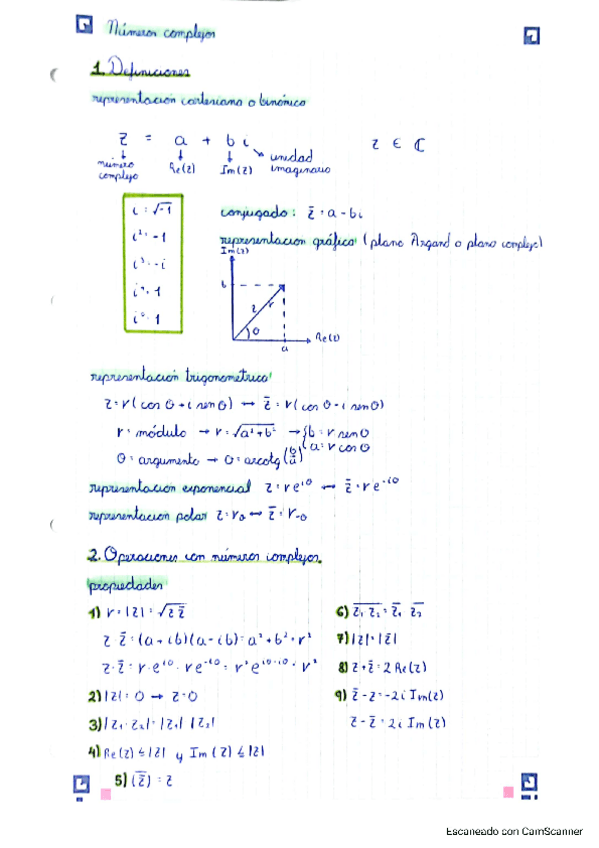 Números complejos
1. Definiciones
representación cartesiana o binómica
z = a + b i z ∈ ℂ
número complejo Re(z) Im(z) unidad imaginaria
i = √-1
i² = -1
i³ = -i
i⁴ = 1
i⁰ = 1
conjugado: z̄ = a - bi
representación gráfica (plano Argand o plano complejo)
Im(z)
b
z r
θ
Re(z)
a
representación trigonométrica
z = r(cos θ + i sen θ) ↔ z̄ = r(cos θ - i sen θ)
r = módulo → r = √a²+b² → { b = r sen θ
a = r cos θ
θ = argumento → θ = arcotg (b/a)
representación exponencial z = r e^iθ ↔ z̄ = r e^-iθ
representación polar z = r_θ ↔ z̄ = r_-θ
2. Operaciones con números complejos.
propiedades
1) r = |z| = √z z̄
z · z̄ = (a + ib)(a - ib) = a² + b² = r²
z · z̄ = r · e^iθ · r e^-iθ = r² e^iθ-iθ = r²
2) |z| = 0 → z = 0
3) |z₁ · z₂| = |z₁| |z₂|
4) Re(z) ≤ |z| y Im(z) ≤ |z|
5) (z̄)‾ = z
6) z₁ z₂‾ = z̄₁ z̄₂
7) |z| = |z̄|
8) z + z̄ = 2 Re(z)
9) z̄ - z = -2i Im(z)
z - z̄ = 2i Im(z)
Escaneado con CamScanner